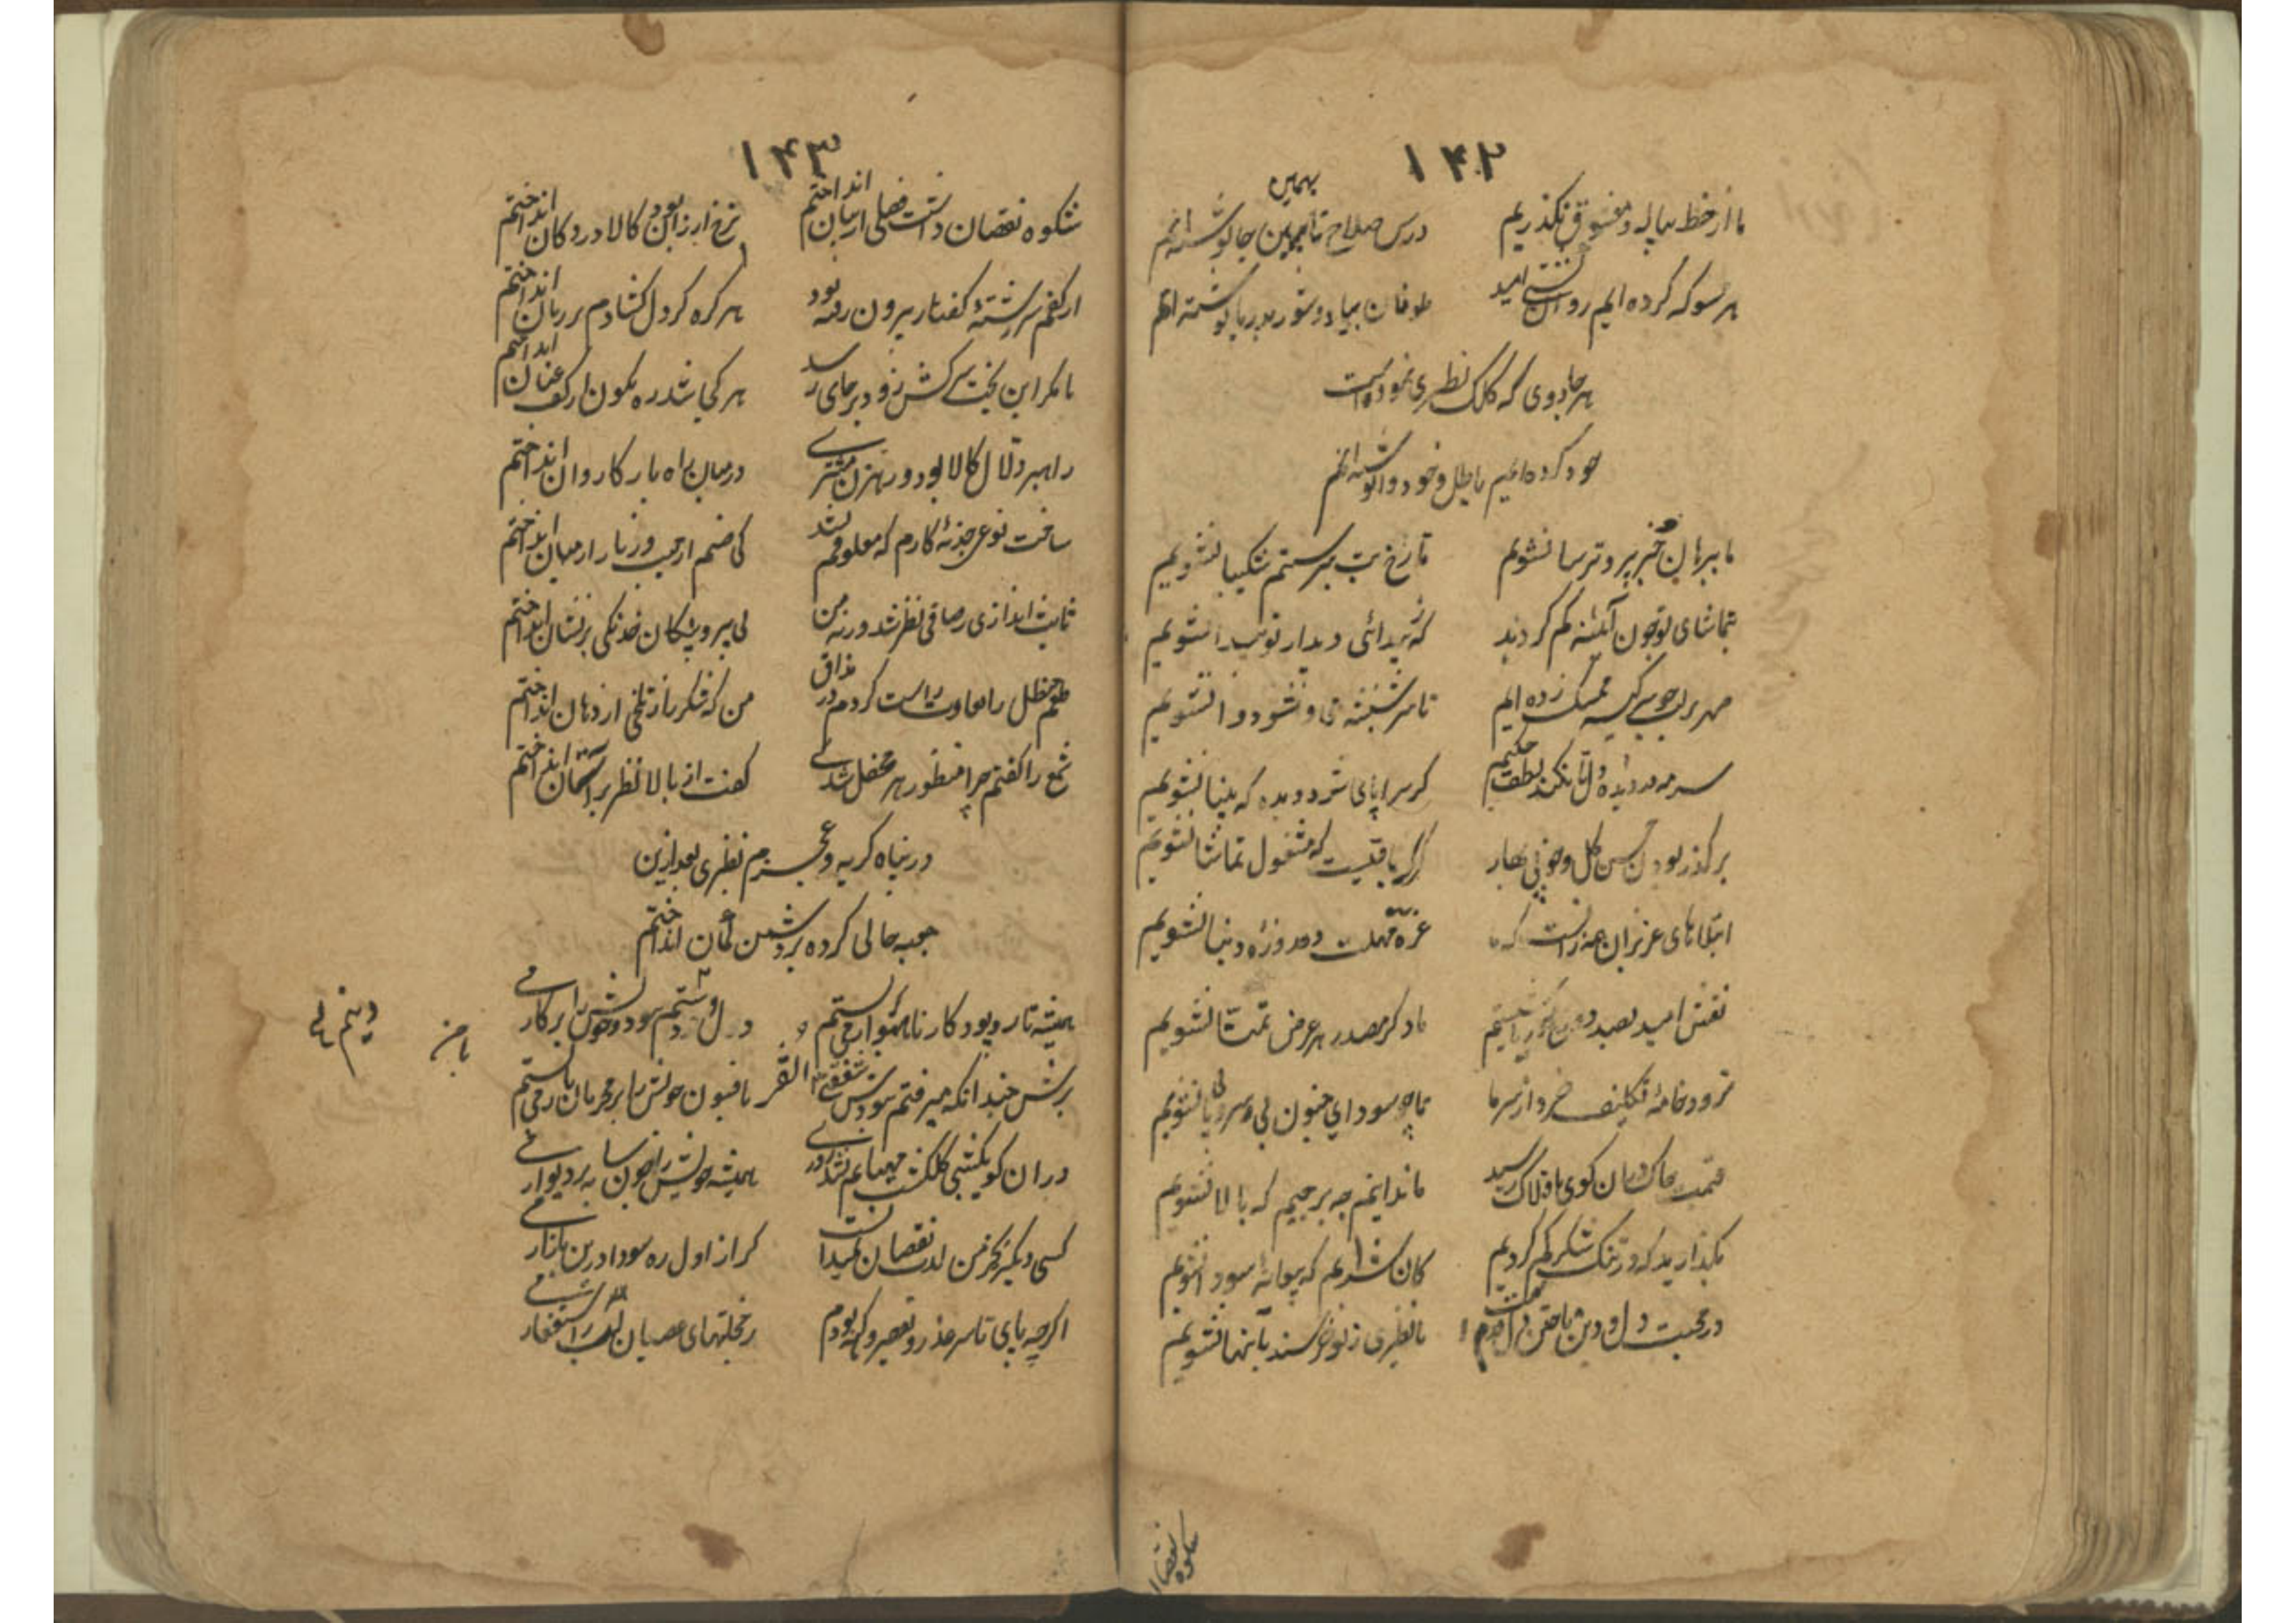 ۱۴۲
بهمین
ما از خط پیاله و معشوق نگذریم درس صلاح تا بهمین جا نوشته‌ایم
هر سو که کرده ایم روان کشتی امید طوفان بیاد و شور بدریا نوشته‌ایم
هر جادوی که کلک نظیری نموده است
خود کرده‌ایم باطل و خود وانوشته‌ایم
ما پیرهان خبر پرو ترسا نشویم تا رخ بت نپرستیم شکیبا نشویم
بتماشای تو چون آئینه کم کردند که ز پیدائی دیدار تو پیدا نشویم
مهر بر لب چو سر کیسه ممسک زده ایم تا سر شیشه می وا نشود وا نشویم
سرمه در دیده دل تا نکند لطف حکیم گر سراپای شود دیده که بینا نشویم
بر گذر بودن حسن گل و خوبی بهار گر یافتیست که مشغول تماشا نشویم
ابتلاهای عزیزان همه زانست که ما غره مهلت ده روزهٔ دنیا نشویم
نقش امید بصد دست یاد گر مصدر هر عرض تمنا نشویم
نرود خامهٔ تکلیف خرد از سر ما تا چو سودای جنون بی سر و بی پا نشویم
قیمت خاک در آن کوی بافلاک رسید ما ندانیم چه برجیم که بالا نشویم
بگذارید که در تنگ شکر گم گردیم کان شداریم که پیمانهٔ سودا نشویم
در محبت دل و دین باختن اول قدم است ما نظیری ز تو خرسند بآنها نشویم
شکوه نقصا
۱۴۳
شکوه نقصان داشت فصلی از میان انداختم نرخ ارزان بود کالا در دکان انداختم
از کفم سررشتهٔ گفتار بیرون رفته بود هر گره کز دل گشادم بر زبان انداختم
تا مگر این بخت سرکش زود بر جای رسد هر کجا شد ره نگون از کف عنان انداختم
راهبر دلال کالا بود و رهزن مشتری در میان راه بار کاروان انداختم
ساخت نوعی جذبهٔ کارم که معلومم نشد کی صنم از جیب و زنار از میان انداختم
ثابت اندازی ز صافی نظر شد ورنه من بی پر و پیکان خدنگی بر نشان انداختم
طعم حنظل را بعادت راست کردم در مذاق من که شکر را ز تلخی از دهان انداختم
شمع را گفتم چرا منظور هر محفل شدی گفت از بالا نظر بر آستان انداختم
در پناه گریه و عجزم نظیری بعد ازین
عجب حالی کرده بر دشمن گمان انداختم
همیشه تار و پود کار ناهموار می بستم دل و دستم سود و خویش را بر کار می بستم
برش چندانکه میرفتم ز سودش شفقت القر بافسون خویش را بر محرمان می بستم
در آن کو یکشبی گلگشت مهتابم نشد روزی همیشه خویش را چون سایه بر دیوار
کسی دیگر بجز من لذت نقصان نمیدانست گر از اول ره سودا درین بازار
اگرچه پای تا سر عذر و تقصیر و گنه بودم ز خجلتهای عصیان لب ز استغفار